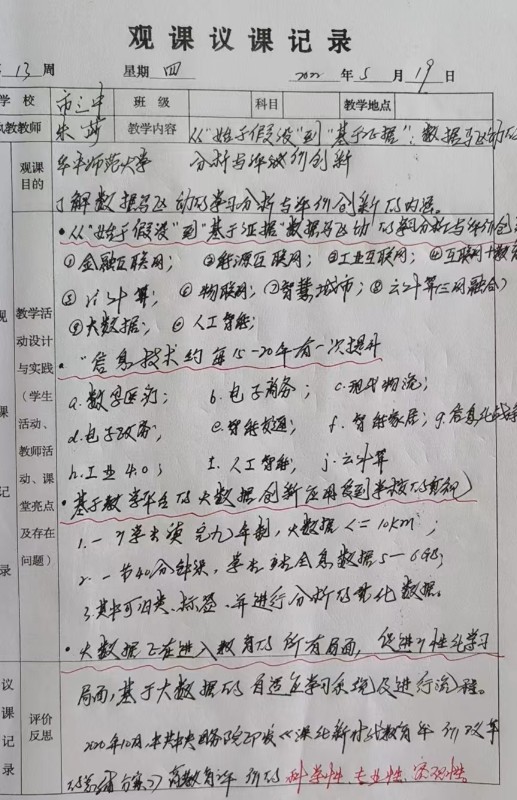 观课议课记录
13 周 星期 四 2022 年 5 月 19 日
学 校 市三中 班 级 科目 教学地点
执教教师 朱莎 教学内容 从“始于假设”到“基于证据”:数据驱动的
观课目的 华中师范大学 分析与评价创新
了解数据驱动的学习分析与评价创新的内涵。
·从“始于假设”到“基于证据”数据驱动的学习分析与评价创
①金融互联网; ②能源互联网; ③工业互联网; ④互联网+教育
⑤ 计算; ⑥物联网; ⑦智慧城市; ⑧云计算(三网融合)
⑨大数据; ⑩人工智能;
·“信息技术约每15-20年有一次提升
a.数字医疗; b.电子商务; c.现代物流;
d.电子政务; e.智能交通; f.智能家居; g.信息化
h.工业4.0; I.人工智能; j.云计算
·基于教学平台的大数据创新应用受到学校的
1.一个学生 年制,大数据<=10
2.一节40分钟课,学生 全息数据5-6GB;
3.其中可归类、标签、并进行分析的量化数据。
·大数据正在进入教育的所有局面,促进个性化学习
局面,基于大数据的自适应学习系统及进行流程。
2020年10月,中共中央国务院印发《深化新时代教育评价改革
的总体方案》 教育评价的科学性、专业性、客观性。
观 课 记 录
教学活动设计与实践(学生活动、教师活动、课堂亮点及存在问题)
议 课 记 录
评价反思